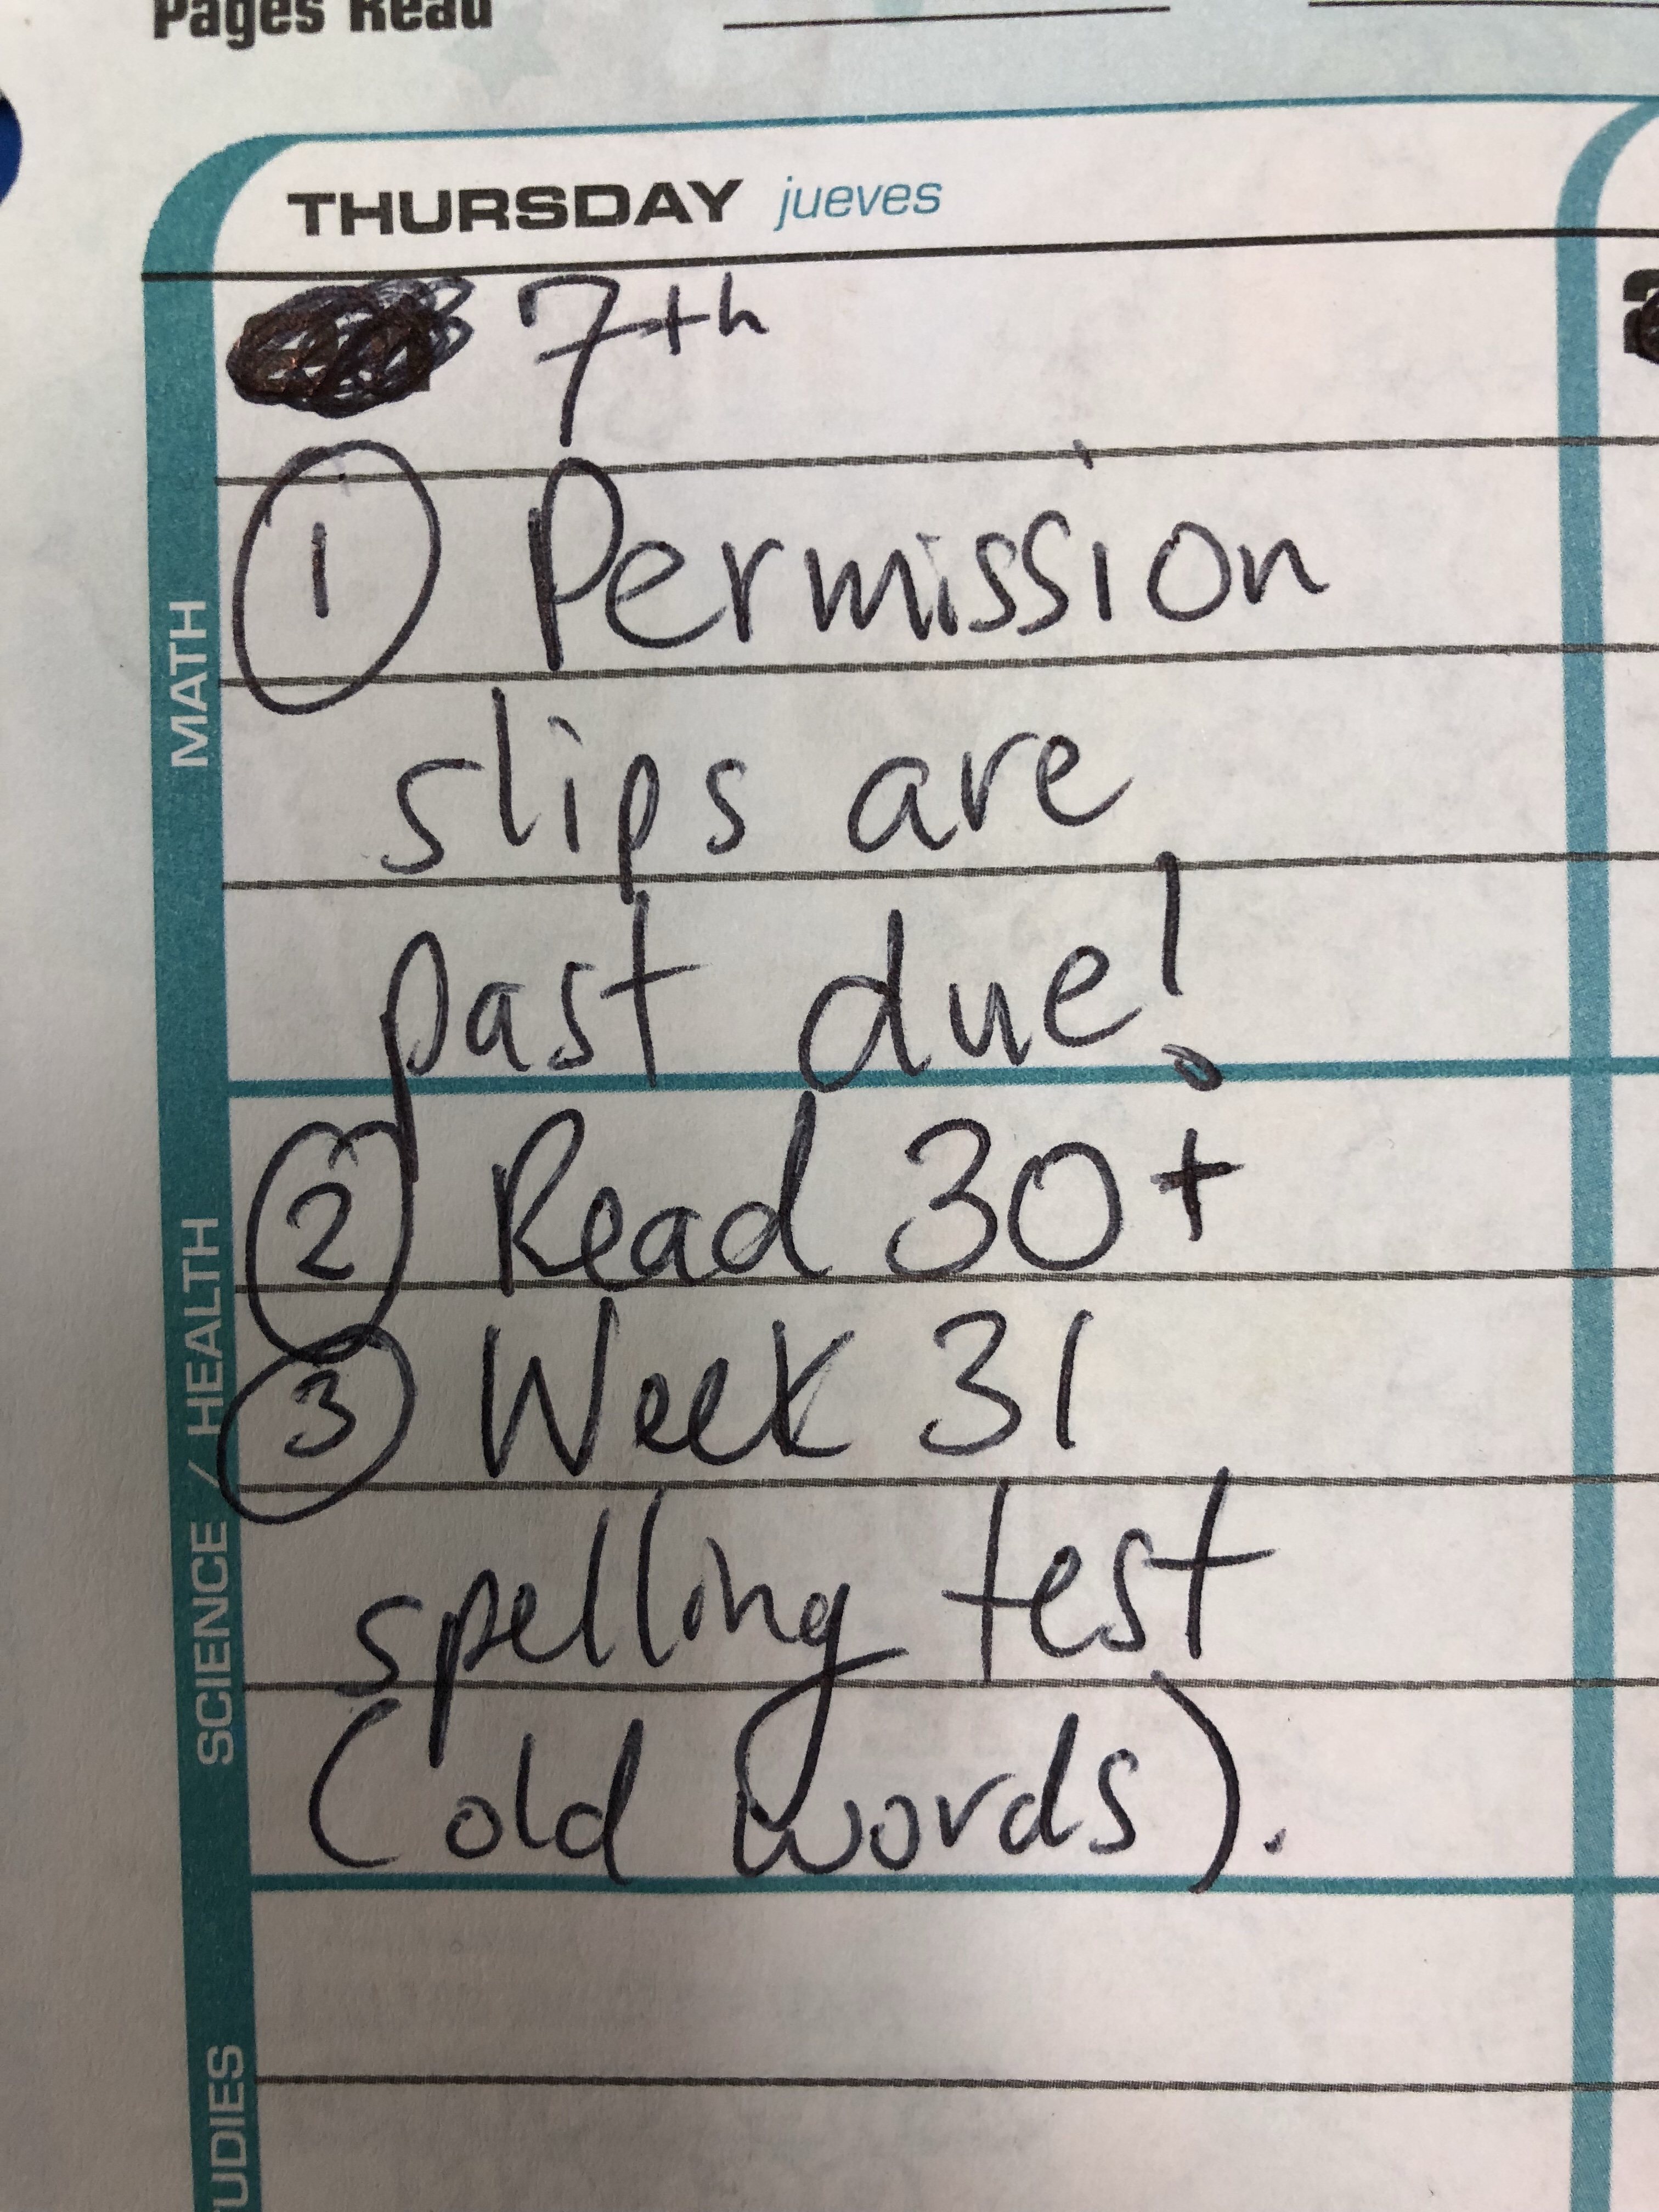 Pages Read
THURSDAY jueves
7th
1 Permission
slips are
past due!
2 Read 30+
3 Week 31
spelling test
(old words).
MATH
SCIENCE / HEALTH